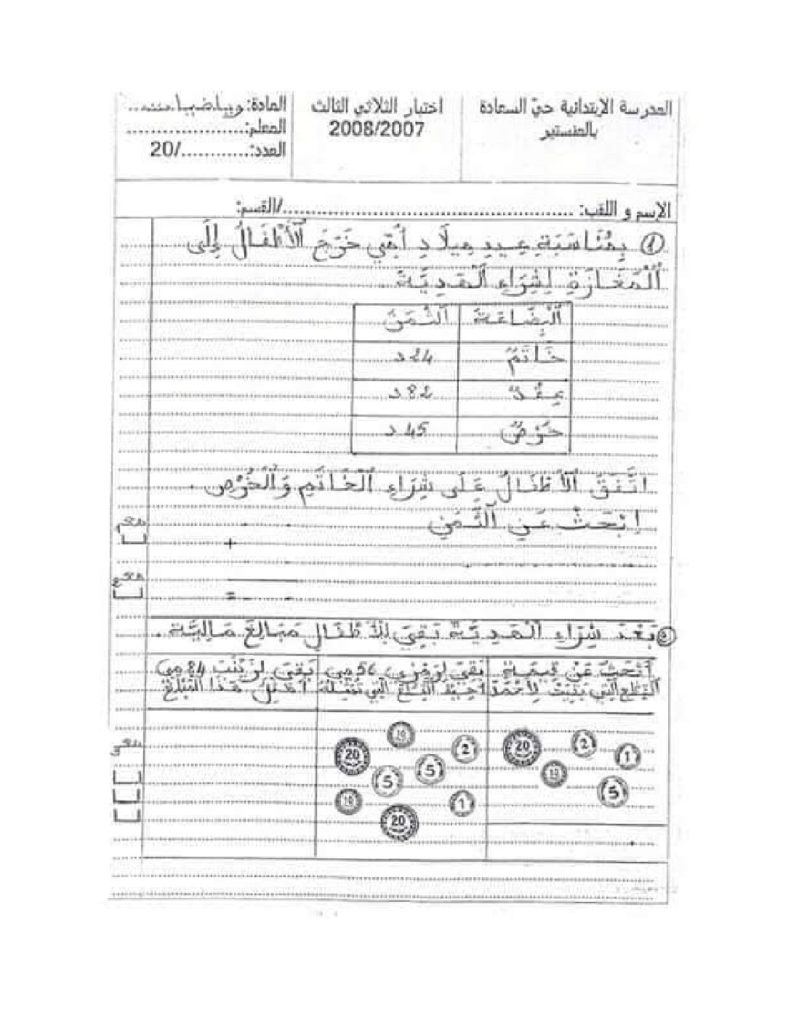 المدرسة الإبتدائية حيّ السعادة
بالمنستير
اختبار الثلاثي الثالث
2008/2007
المادة: رياضيات
المعلم:....................
العدد:............/20
الإسم و اللقب: ..................................................../القسم:
① بِمُنَاسَبَةِ عِيدِ مِيلَادِ أُمِّي خَرَجَ الْأَطْفَالُ إِلَى
الْمَغَازَةِ لِشِرَاءِ الْهَدِيَّةَ.
الْبِضَاعَةَ الثَّمَنُ
خَاتَمٌ 24 د
عِقْدٌ 82 د
خُرْصٌ 45 د
اتَّفَقَ الْأَطْفَالُ عَلَى شِرَاءِ الْخَاتَمِ وَالْخُرْصِ.
اِبْحَثْ عَنِ الثَّمَنِ
مع
+
مع
=
② بَعْدَ شِرَاءِ الْهَدِيَّةَ بَقِيَ لِلْأَطْفَالِ مَبَالِغَ مَالِيَّة.
اُبْحَثْ عَنْ قِيمَةِ
الْمَبْلَغِ الَّتِي بَقِيَتْ لِأَحْمَدْ
بَقِيَ لِرَمْزِي 56 مي
أُحِيطُ الْمَبْلَغَ الَّتِي تُمَثِّلُهُ
بَقِيَ لِزَيْنَبْ 84 مي
هَذَا الْمَبْلَغَ
20 2 1
10 5
10 2
20 5 5
10 1
20
مع